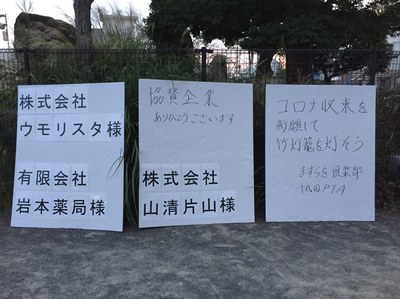 株式会社
ウモリスタ様
有限会社
岩本薬局様
協賛企業
ありがとうございます
株式会社
山清片山様
コロナ収束を
祈願して
竹灯籠を灯そう
ますらを倶楽部
PTA